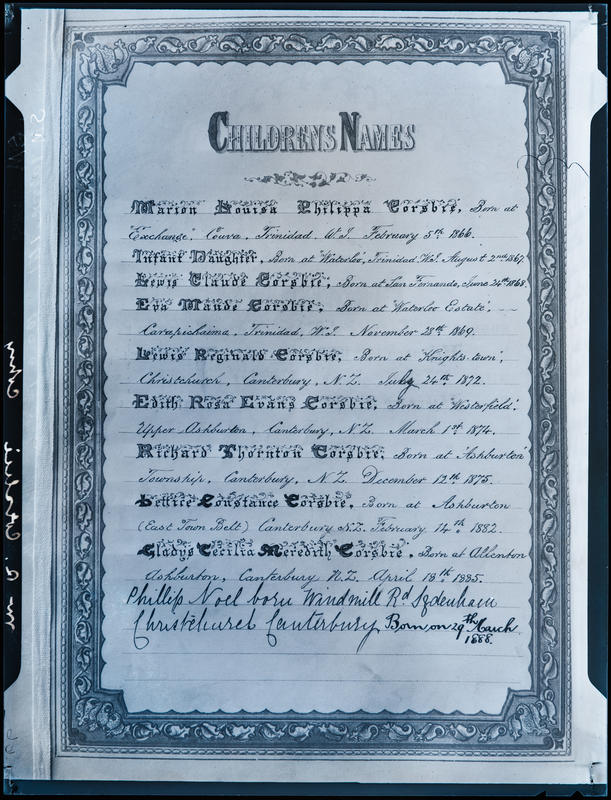 CHILDRENS NAMES
Marion Louisa Philippa Corsbie, Born at
"Exchange", Couva, Trinidad, W.I. February 5th 1866.
Infant Daughter, Born at Waterloo, Trinidad W.I. August 2nd 1867.
Lewis Claude Corsbie, Born at San Fernando, June 24th 1868.
Eva Maude Corsbie, Born at Waterloo Estate,
Carapichaima, Trinidad, W.I. November 28th 1869.
Lewis Reginald Corsbie, Born at Knights-town,
Christchurch, Canterbury, N.Z. July 24th 1872.
Edith Rosa Evans Corsbie, Born at Westerfield,
Upper Ashburton, Canterbury, N.Z. March 1st 1874.
Richard Thornton Corsbie, Born at Ashburton
Township, Canterbury, N.Z. December 12th 1875.
Lettice Constance Corsbie, Born at Ashburton
(East Town Belt) Canterbury N.Z. February 14th 1882.
Gladys Cecilia Meredith Corsbie, Born at Allenton
Ashburton, Canterbury N.Z. April 18th 1885.
Phillip Noel born Windmill Rd Sydenham
Christchurch Canterbury Born, on 29th March
1888.